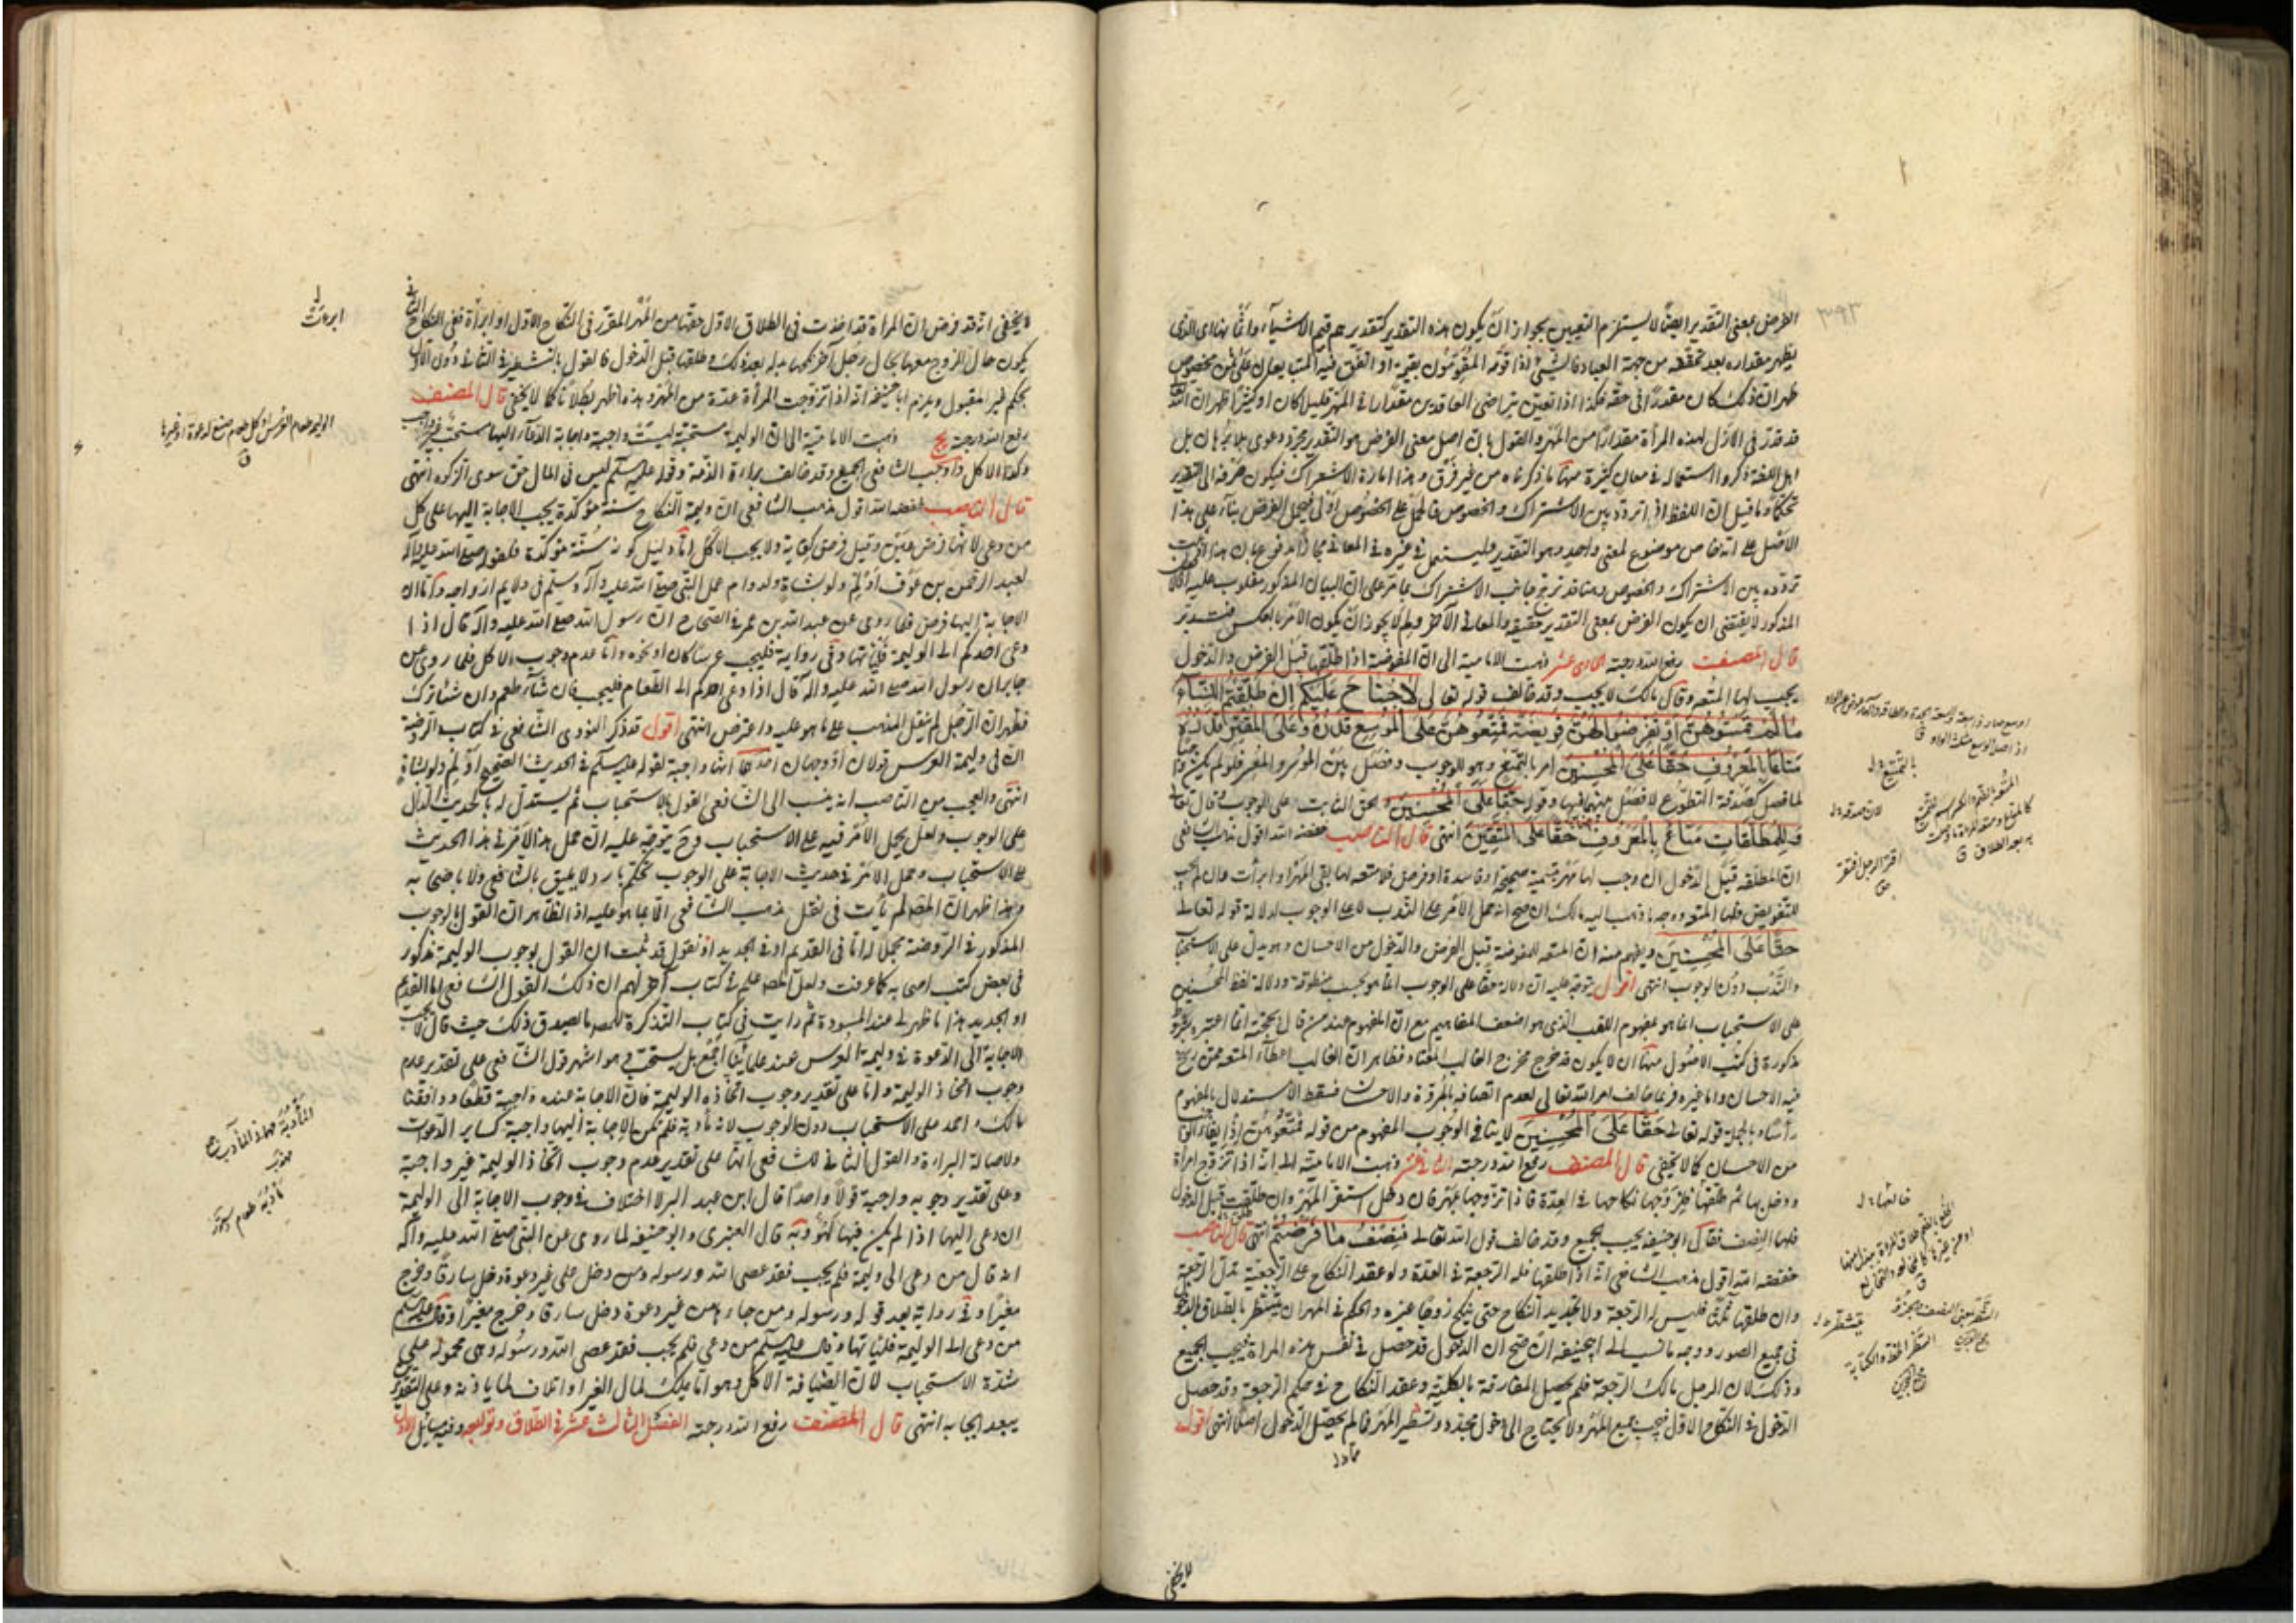 ٣٩٣
الفرض بمعنى التقدير ايضًا لا يستلزم التعيين بجواز ان يكون هذه التقدير كتقديرهم قيم الاشياء وانما بهذا اى الذى
يظهر مقداره بعد تحققه من جهة العباد فالشىء اذا قوّمه المقوّمون بقيمة او اتفق فيه البيع على ثمن مخصوص
ظهر ان ذلك كان مقدرًا فى حقه هكذا اذا تعين بتراضى العاقدين مقدار فى المهر قليل كان او كثيرًا ظهر ان الله
قد قدّر فى الازل لهذه المرأة مقدارًا من المهر والقول بان اصل معنى الفرض هو التقدير مجرد دعوى بلا برهان بل
اهل اللغة ذكروا استعماله فى معان كثيرة منها ما ذكرناه من غير فرق وهذا امارة الاشتراك فيكون صرفه الى التقدير
تحكمًا وما قيل ان اللفظ اذا تردد بين الاشتراك والخصوص فالحمل على الخصوص اولى فيحمل الفرض بناء على هذا
الاصل على انه خاص موضوع لمعنى واحد وهو التقدير وليستعمل فى غيره فى المعانى مجازًا مدفوع بان هذا
تردده بين الاشتراك والخصوص وههنا قد ترجح جانب الاشتراك بما مر على ان البيان المذكور مقلوب عليه
المذكور لا يقتضى ان يكون الفرض بمعنى التقدير حقيقة والمعانى الاخر ولم لا يجوز ان يكون الامر بالعكس فتدبر
قال المصنف رفع الله درجته الحادى عشر ذهبت الامامية الى ان المفوضة اذا طلقها قبل الفرض والدخول
يجب لها المتعة وقال مالك لا يجب وقد خالف قوله تعالى لَا جُنَاحَ عَلَيْكُمْ إِنْ طَلَّقْتُمُ النِّسَاءَ
مَا لَمْ تَمَسُّوهُنَّ أَوْ تَفْرِضُوا لَهُنَّ فَرِيضَةً فَمَتِّعُوهُنَّ عَلَى الْمُوسِعِ قَدَرُهُ وَعَلَى الْمُقْتِرِ قَدَرُهُ
مَتَاعًا بِالْمَعْرُوفِ حَقًّا عَلَى الْمُحْسِنِينَ امر بالتمتع وهو للوجوب وفصل بين الموسر والمعسر فلو لم يكن
لما فصل كصدقة التطوع لا فصل بينهما فيها وقوله حَقًّا عَلَى الْمُحْسِنِينَ والحق الثابت وعلى للوجوب وقال تعالى
وَلِلْمُطَلَّقَاتِ مَتَاعٌ بِالْمَعْرُوفِ حَقًّا عَلَى الْمُتَّقِينَ انتهى قال الناصب خفضه الله اقول مذهب الشافعى
ان المطلقة قبل الدخول ان وجب لها مهر بتسمية صحيحة او فاسدة او فرض فلا متعة لها بقى المهر او ابرأت وان لم يجب
للتفويض فلها المتعة ووجه ما ذهب اليه مالك ان صح انه حمل الامر على الندب لا على الوجوب لدلالة قوله تعالى
حَقًّا عَلَى الْمُحْسِنِينَ ويفهم منه ان المتعة للمفوضة قبل الفرض والدخول من الاحسان وهو يدل على الاستحباب
والندب دون الوجوب انتهى اقول يتوجه عليه ان دلالة حقًا على الوجوب انما هو بحسب منطوقه ودلالة لفظ المحسنين
على الاستحباب انما هو بمفهوم اللقب الذى هو اضعف المفاهيم مع ان المفهوم عند من قال بحجيته انما اعتبره بشروط
مذكورة فى كتب الاصول منها ان لا يكون قد خرج مخرج الغالب المعتاد فظاهر ان الغالب اعطاء المتعة ممن
فيه الاحسان واما غيره فربما خالف امر الله تعالى لعدم اتصافه بالمروة والاحسان فسقط الاستدلال بالمفهوم
رأسًا وبالجملة قوله تعالى حَقًّا عَلَى الْمُحْسِنِينَ لا ينافى الوجوب المفهوم من قوله فمتعوهن اذ ايفاء الواجب
من الاحسان كما لا يخفى قال المصنف رفع الله درجته الثانى عشر ذهبت الامامية الى انه اذا تزوج امرأة
ودخل بها ثم طلقها فله تزوجها نكاحها فى العدة فاذا تزوجها بمهر فان دخل استقر المهر وان طلقت قبل الدخول
فلها النصف فقال ابو حنيفة يجب الجميع وقد خالف قول الله تعالى فَنِصْفُ مَا فَرَضْتُمْ انتهى قال الناصب
خفضه الله اقول مذهب الشافعى انه اذا طلقها فله الرجعة فى العدة ولو عقد النكاح على الرجعية
وان طلقها ثلاثًا فليس له الرجعة ولا تجديد النكاح حتى ينكح زوجًا غيره والحكم فى المهر ان يتشطر بالطلاق
فى جميع الصور ووجه ما نسب الى ابى حنيفة ان صح ان الدخول قد حصل فى نفس هذه المرأة فيجب الجميع
وذلك لان الرجل مالك الرجعة فلم يحصل المفارقة بالكلية وعقد النكاح فى حكم الرجعة وقد حصل
الدخول فى النكاح الاول فيجب جميع المهر ولا يحتاج الى دخول مجدد وتشطير المهر فيما لم يحصل الدخول اصلًا انتهى اقول
بالتمتيع
لان صدقة
خالعها
يتشطر
لا يخفى
لا يخفى انه قد فرض ان المرأة قد اخذت فى الطلاق الاول حقها من المهر المقرر فى النكاح الاول او ابرأه ففى النكاح الثانى
يكون حال الزوج معها كحال رجل آخر نكحها بدله بعد ذلك وطلقها قبل الدخول فالقول بالتشطير فى الثانى دون الاول
تحكم غير مقبول ويلزم ابا حنيفة انه اذا تزوجت المرأة عدة من اظهر وهذه اظهر بطلانًا كما لا يخفى قال المصنف
رفع الله درجته يج ذهبت الامامية الى ان الوليمة مستحبة ليست واجبة واجابة الدعاء اليها مستحب غير واجب
وكذا الاكل واوجب الشافعى الجميع وقد خالف براءة الذمة وقوله عليه السلم ليس فى المال حق سوى الزكوة انتهى
قال الناصب خفضه الله اقول مذهب الشافعى ان وليمة النكاح سنة مؤكدة يجب الاجابة اليها على كل
من دعى لانها فرض عين وقيل فرض كفاية ولا يجب الاكل اما دليل كونه سنة مؤكدة فلقوله صلى الله عليه وآله
لعبد الرحمن بن عوف أولم ولو بشاة ولدوام عمل النبى صلى الله عليه وآله وسلم فى ولايم ازواجه واما ان
الاجابة اليها فرض فلما روى عن عبد الله بن عمر فى الصحاح ان رسول الله صلى الله عليه وآله قال اذا
دعى احدكم الى الوليمة فليأتها وفى رواية فليجب عرسًا كان او نحوه واما عدم وجوب الاكل فلما روى عن
جابر ان رسول الله صلى الله عليه وآله قال اذا دعى احدكم الى الطعام فليجب فان شاء طعم وان شاء ترك
فظهر ان الرجل لم ينقل المذهب على ما هو عليه واعترض انتهى اقول قد ذكر النووى الشافعى فى كتاب الروضة
ان فى وليمة العرس قولان او وجهان احدهما انها واجبة لقوله عليه السلم فى الحديث الصحيح اولم ولو بشاة
انتهى والعجب من الناصب انه ينسب الى الشافعى القول بالاستحباب ثم يستدل له بالحديث الدال
على الوجوب ولعله يحمل الامر فيه على الاستحباب وح يتوجه عليه ان حمل هذا الامر فى هذا الحديث
على الاستحباب وحمل الامر فى حديث الاجابة على الوجوب تحكم بارد لا يليق بالشافعى ولا باصحابه
وبهذا ظهر ان المصنف لم يأت فى نقل مذهب الشافعى الا بما هو عليه اذ الظاهر ان القول بالوجوب
المذكور فى الروضة مجملًا له اما فى القديم او فى الجديد او نقول قد ثبت ان القول بوجوب الوليمة مذكور
فى بعض كتب اصحابه كما عرفت ولعل المصنف علم فى كتاب آخر لهم ان ذلك القول للشافعى اما القديم
او الجديد هذا ما ظهر لى عند المسودة ثم رأيت فى كتاب التذكرة للمصنف ما يصدق ذلك حيث قال لا يجب
الاجابة الى الدعوة فى وليمة العرس عند علمائنا اجمع بل يستحب وهو اشهر قول الشافعى على تقدير عدم
وجوب اتخاذ الوليمة واما على تقدير وجوب اتخاذه الوليمة فان الاجابة عنده واجبة قطعًا ووافقنا
مالك واحمد على الاستحباب دون الوجوب لانه مأدبة فلم تكن الاجابة اليها واجبة كساير الدعوات
ولاصالة البراءة والقول الثانى للشافعى انها على تقدير عدم وجوب اتخاذ الوليمة غير واجبة
وعلى تقدير وجوبه واجبة قولًا واحدًا قال ابن عبد البر لا اختلاف فى وجوب الاجابة الى الوليمة
ان دعى اليها اذا لم يكن فيها لهو وبه قال العنبرى وابو حنيفة لما روى عن النبى صلى الله عليه وآله
انه قال من دعى الى وليمة فلم يجب فقد عصى الله ورسوله ومن دخل على غير دعوة دخل سارقًا وخرج
مغيرًا وفى رواية بعد قوله ورسوله ومن جاءها من غير دعوة دخل سارقا وخرج مغيرًا وقال عليه السلم
من دعى الى الوليمة فليأتها وقال عليه السلم من دعى فلم يجب فقد عصى الله ورسوله وهى محمولة على
شدة الاستحباب لان الضيافة الاكل وهو اما تمليك لمال الغير او اتلاف لما يأذنه وعلى التقديرين
يبعد ايجابه انتهى قال المصنف رفع الله درجته الفصل الثالث عشر فى الطلاق وتوابعه وفيه مسائل الاول
ابرءت
الوليمة طعام العرس او كل طعام صنع لدعوة او غيرها
ق